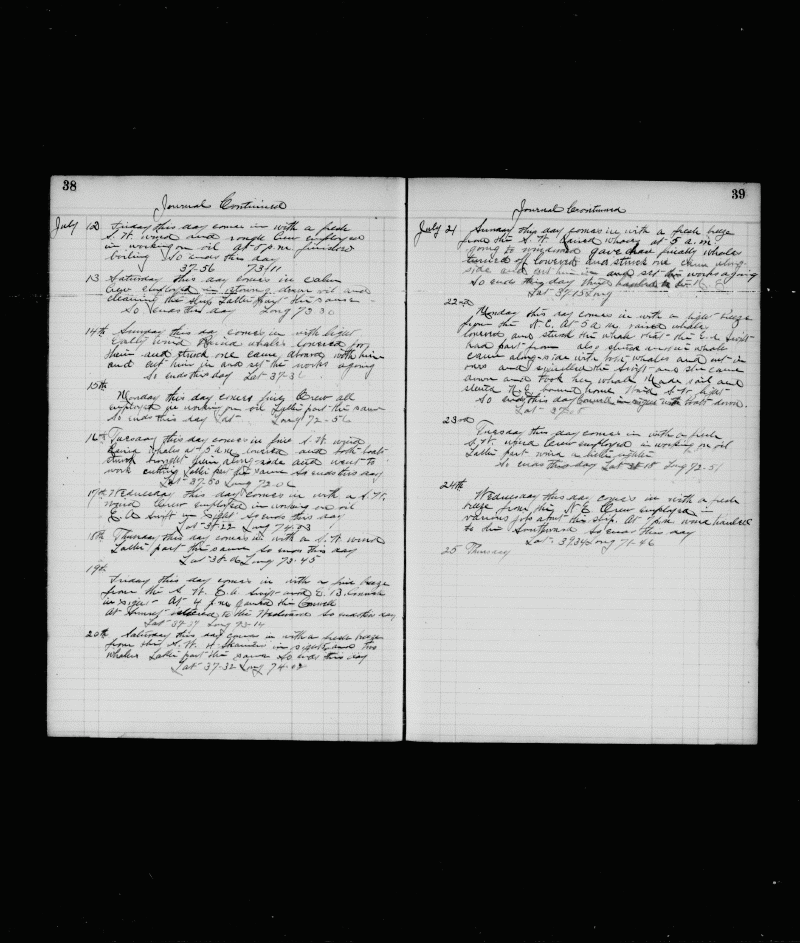 38
Journal Continued
July 12 Friday this day comes in with a fresh
S.W. wind and rough Crew employed
in working on oil At 5 P.m. finished
boiling So ends this day
37-56 73/11
13 Saturday this day comes in calm
Crew employed in stowing down oil and
cleaning the ship Latter part the same
So ends this day Long 73-30
14th Sunday this day comes in with light
wind Raised whales Lowered for
them and struck one came aboard with him
and cut him in and set the works agoing
So ends this day Lat 37-3
15th
Monday this day comes fine Crew all
employed in working on oil Latter part the same
So ends this day Lat Long 72-56
16th Tuesday this day comes in fine S.W. wind
Raised whales at 5 a.m. lowered and both boats
struck brought them along-side and went to
work cutting Latter part the same So ends this day
Lat 37-50 Long 72-06
17th Wednesday this day comes in with a S.W.
wind Crew employed in working on oil
E.A. Swift in sight So ends this day
Lat 38-22 Long 74-
18th Thursday this day comes in with a S.W. wind
Latter part the same So ends this day
Lat 38- Long 73-45
19th
Friday this day comes in with a fine breeze
from the S.W. E.A. Swift and
in sight At 4 P.m. the
At Sunset to the So ends this day
Lat 37-37 Long 73-14
20th Saturday this day comes in with a fresh breeze
from the S.W. A in sight and two
whalers Latter part the same So ends this day
Lat 37-32 Long 74-02
39
Journal Continued
July 21 Sunday this day comes in with a fresh breeze
from the S.W. Raised whales at 5 a.m.
going to windward gave chase finally whale
turned off lowered and struck one came along-
side and cut him in and set the works agoing
So ends this day
Lat 37-15 Long
22nd
Monday this day comes in with a light breeze
from the N.E. At 5 a.m. raised whale
lowered and struck the whale that the E.A. Swift
had part from also struck another whale
came along-side with both whales and cut in
ones and the Swift and she came
down and took her whale Made sail and
steered N.E. bound home Wind S.W. light
So ends this day in sight with boats down.
Lat 37-
23rd
Tuesday this day comes in with a fresh
S.W. wind Crew employed in working on oil
Latter part wind a little lighter
So ends this day Lat 38 18 Long 72-51
24th
Wednesday this day comes in with a fresh
breeze from the N.E. Crew employed in
various jobs about the ship. At 7 P.m. wind hauled
to the Southward So ends this day
Lat. 39.34 Long 71-46
25 Thursday